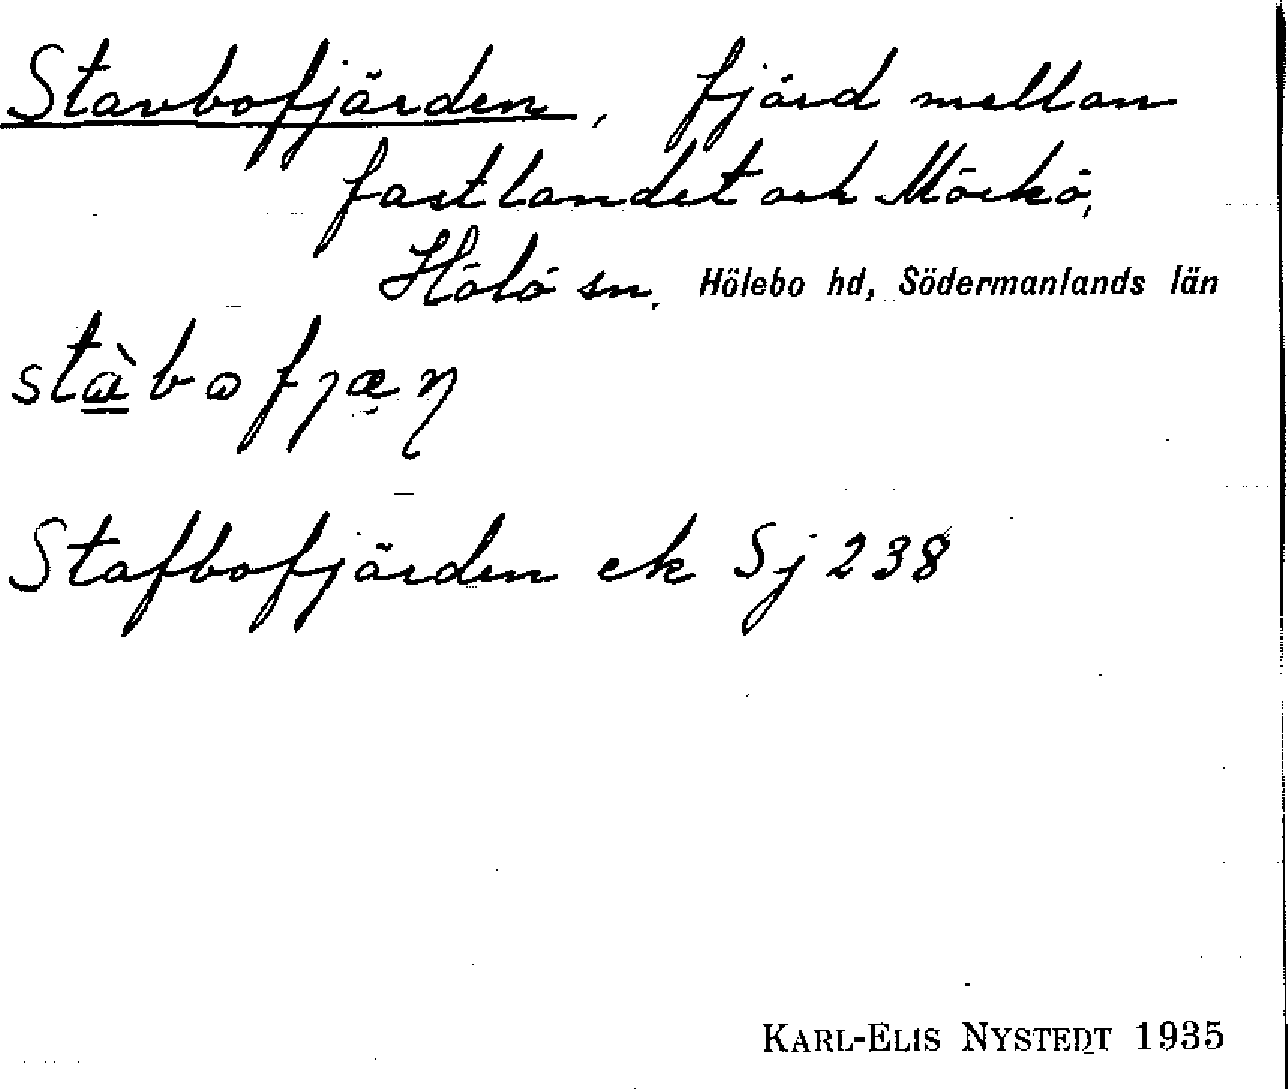 Stavbofjärden, fjärd mellan
fastlandet och Mörkö,
Hölö sn, Hölebo hd, Södermanlands län
Stafbofjärden ek Sj 238
KARL-ELIS NYSTEDT 1935